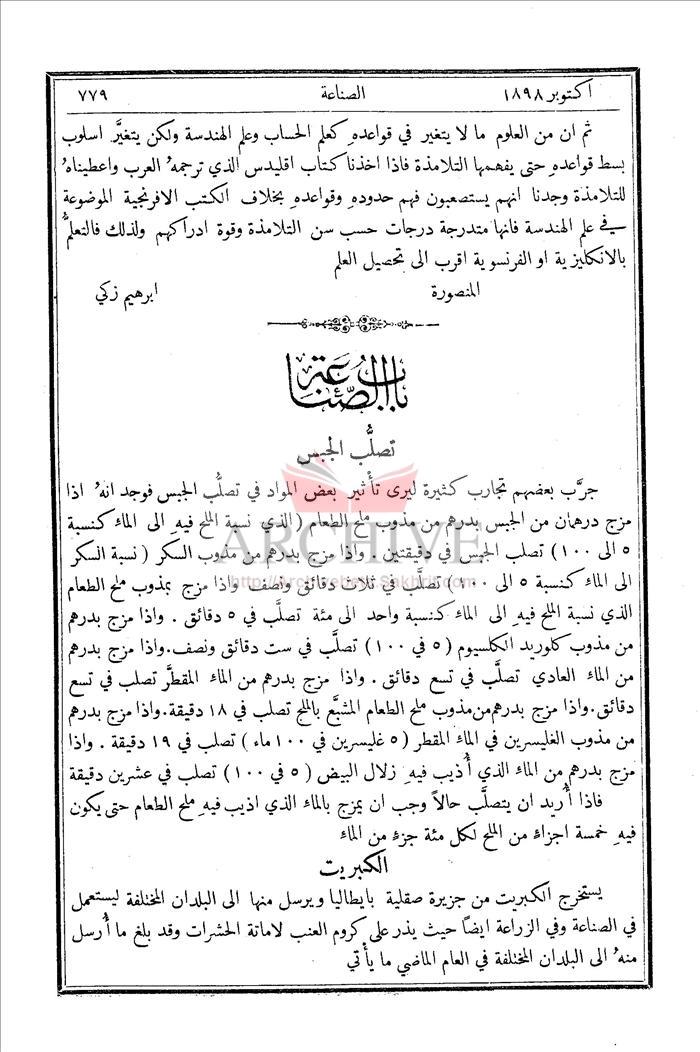 اكتوبر ١٨٩٨ الصناعة ٧٧٩
ثم ان من العلوم ما لا يتغير في قواعدهِ كعلم الحساب وعلم الهندسة ولكن يتغيَّر اسلوب
بسط قواعدهِ حتى يفهمها التلامذة فاذا اخذنا كتاب اقليدس الذي ترجمهُ العرب واعطيناهُ
للتلامذة وجدنا انهم يستصعبون فهم حدودهِ وقواعدهِ بخلاف الكتب الافرنجية الموضوعة
في علم الهندسة فانها متدرجة درجات حسب سن التلامذة وقوة ادراكهم ولذلك فالتعلُّم
بالانكليزية او الفرنسوية اقرب الى تحصيل العلم
المنصورة ابرهيم زكي
باب الصناعة
تصلُّب الجبس
جرَّب بعضهم تجارب كثيرة ليرى تأْثير بعض المواد في تصلُّب الجبس فوجد انهُ اذا
مزج درهمان من الجبس بدرهم من مذوب ملح الطعام (الذي نسبة الملح فيهِ الى الماء كنسبة
٥ الى ١٠٠) تصلب الجبس في دقيقتين . واذا مزج بدرهم من مذوب السكر (نسبة السكر
الى الماء كنسبة ٥ الى ١٠٠) تصلَّب في ثلاث دقائق ونصف واذا مزج بمذوب ملح الطعام
الذي نسبة الملح فيهِ الى الماء كنسبة واحد الى مئة تصلَّب في ٥ دقائق . واذا مزج بدرهم
من مذوب كلوريد الكلسيوم (٥ في ١٠٠) تصلَّب في ست دقائق ونصف.واذا مزج بدرهم
من الماء العادي تصلَّب في تسع دقائق . واذا مزج بدرهم من الماء المقطَّر تصلب في تسع
دقائق.واذا مزج بدرهم من مذوب ملح الطعام المشبَّع بالملح تصلب في ١٨ دقيقة.واذا مزج بدرهم
من مذوب الغليسرين في الماء المقطر (٥ غليسرين في ١٠٠ ماء) تصلب في ١٩ دقيقة . واذا
مزج بدرهم من الماء الذي أُذيب فيهِ زلال البيض (٥ في ١٠٠) تصلب في عشرين دقيقة
فاذا أُريد ان يتصلَّب حالاً وجب ان يمزج بالماء الذي اذيب فيهِ ملح الطعام حتى يكون
فيهِ خمسة اجزاءٍ من الملح لكل مئة جزءٍ من الماء
الكبريت
يستخرج الكبريت من جزيرة صقلية بايطاليا ويرسل منها الى البلدان المختلفة ليستعمل
في الصناعة وفي الزراعة ايضاً حيث يذر على كروم العنب لاماتة الحشرات وقد بلغ ما أُرسل
منهُ الى البلدان المختلفة في العام الماضي ما يأْتي
ARCHIVE
http://Archivebeta.Sakhrit.com